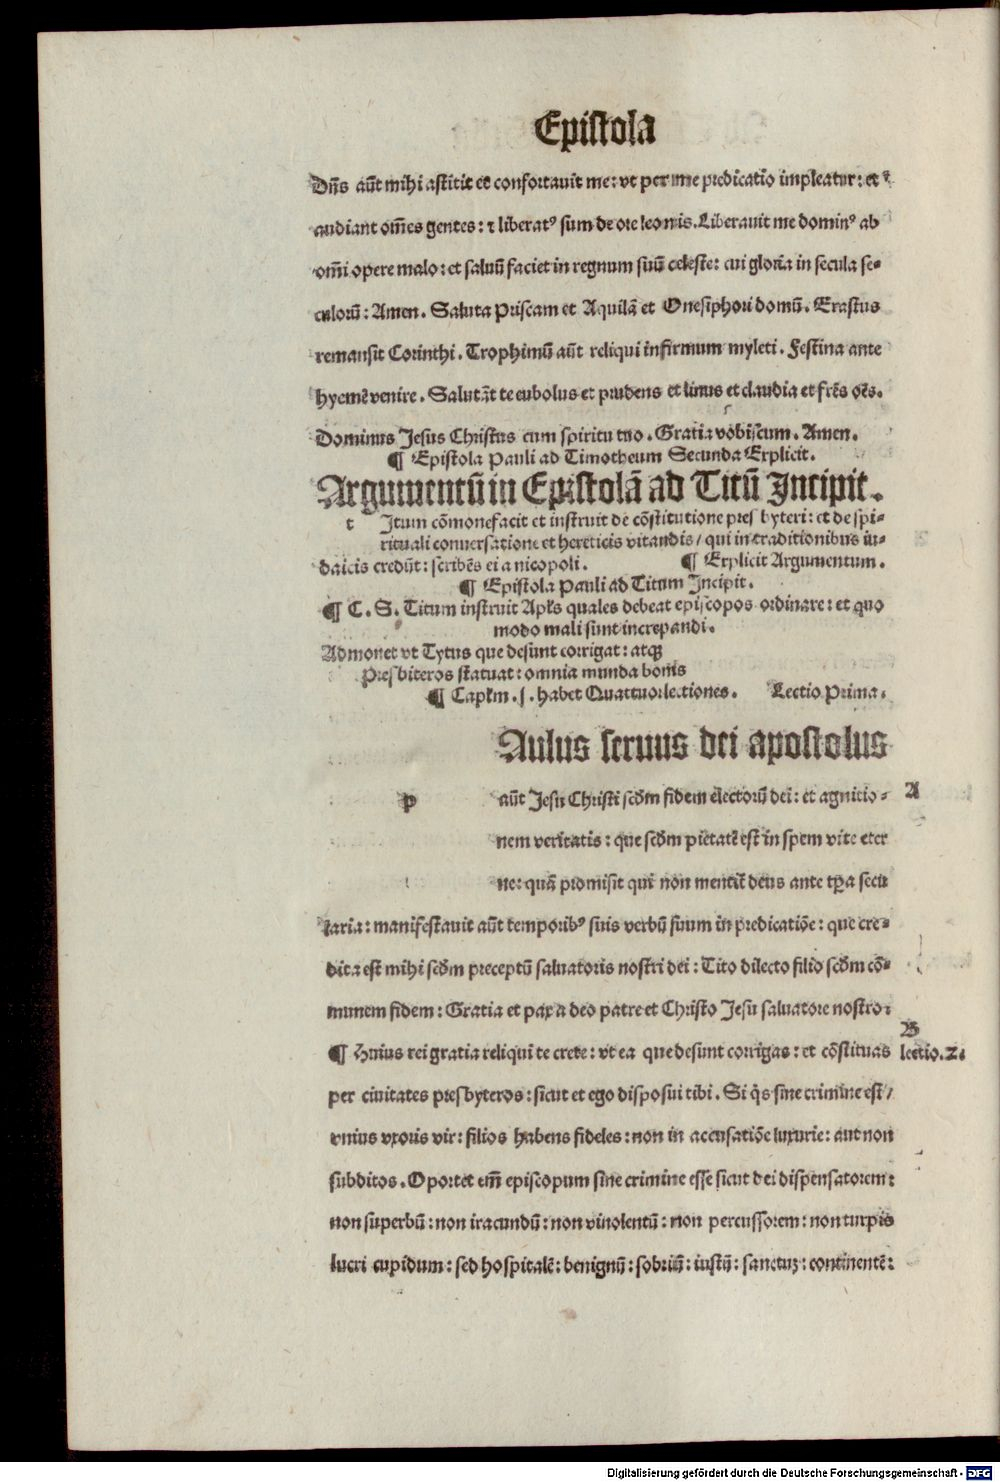 Epistola
Dn̄s aūt mihi astitit et confortauit me: vt per me predicatio impleatur: et vt
audiant om̄es gentes: ⁊ liberatꝰ sum de ore leonis. Liberauit me dominꝰ ab
om̄i opere malo: et saluū faciet in regnum suū celeste: cui gloria in secula se-
culorū: Amen. Saluta Priscam et Aquilā et Onesiphori domū. Erastus
remansit Corinthi. Trophimū aūt reliqui infirmum myleti. Festina ante
hyemē venire. Salutāt te eubolus et prudens et linus et claudia et frēs oēs.
Dominus Jesus Christus cum spiritu tuo. Gratia vobiscum. Amen.
¶ Epistola Pauli ad Timotheum Secunda Explicit.
Argumentū in Epistolā ad Titū Incipit.
t Jtum cōmonefacit et instruit de cōstitutione pres byteri: et de spi-
rituali conuersatione et hereticis vitandis/ qui in traditionibus iu-
daicis credūt: scribēs ei a nicopoli. ¶ Explicit Argumentum.
¶ Epistola Pauli ad Titum Incipit.
¶ C. S. Titum instruit Apl̄s quales debeat episcopos ordinare: et quo
modo mali sunt increpandi.
Admonet vt Tytus que desunt corrigat: atqꝫ
Presbiteros statuat: omnia munda bonis
¶ Capl̄m. j. habet Quattuor lectiones. Lectio Prima.
Aulus seruus dei apostolus
p aūt Jesu Christi scd̄m fidem electorū dei: et agnitio- A
nem veritatis: que scd̄m pietatē est in spem vite eter
ne: quā promisit qui non mentit̄ deus ante tp̄a secu
laria: manifestauit aūt temporibꝰ suis verbū suum in predicatiōe: que cre-
dita est mihi scd̄m preceptū saluatoris nostri dei: Tito dilecto filio scd̄m cō-
munem fidem: Gratia et pax a deo patre et Christo Jesu saluatore nostro:
B
¶ Huius rei gratia reliqui te crete: vt ea que desunt corrigas: et cōstituas lectio. 2.
per ciuitates presbyteros: sicut et ego disposui tibi. Si q̄s sine crimine est/
vnius vxoris vir: filios habens fideles: non in accusatiōe luxurie: aut non
subditos. Oportet em̄ episcopum sine crimine esse sicut dei dispensatorem:
non superbū: non iracundū: non vinolentū: non percussorem: non turpis
lucri cupidum: sed hospitalē: benignū: sobriū: iustū: sanctuꝫ: continentē:
Digitalisierung gefördert durch die Deutsche Forschungsgemeinschaft - DFG